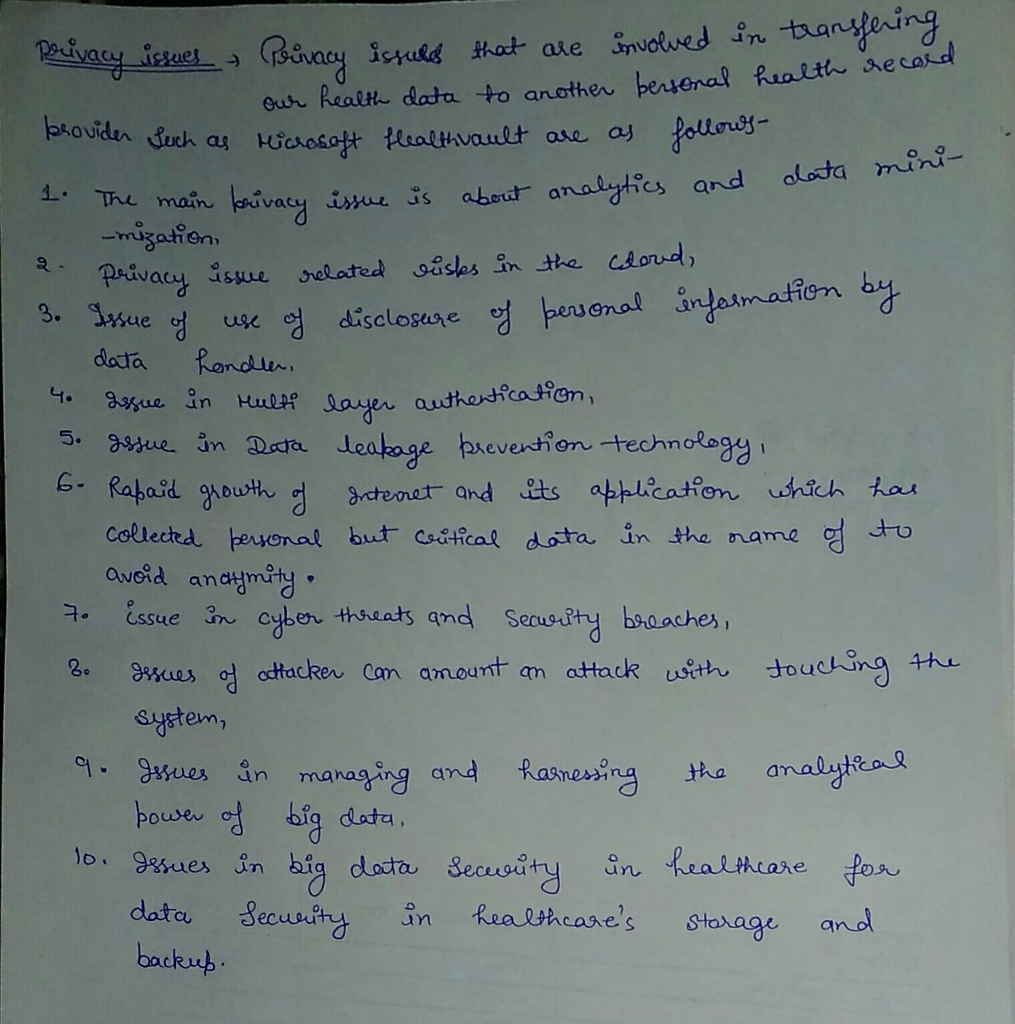 Privacy issues → Privacy issues that are involved in transfering
our health data to another personal health record
provider such as Microsoft Healthvault are as follows-
1. The main privacy issue is about analytics and data mini-
-mization,
2. Privacy issue related risks in the cloud,
3. Issue of use of disclosure of personal information by
data handler.
4. Issue in Multi layer authentication,
5. Issue in Data leakage prevention technology,
6- Rapaid growth of Internet and its application which has
collected personal but critical data in the name of to
avoid anaymity.
7. issue in cyber threats and security breaches,
8. Issues of attacker can amount an attack with touching the
system,
9. Issues in managing and harnessing the analytical
power of big data.
10. Issues in big data security in healthcare for
data security in healthcare's storage and
backup.